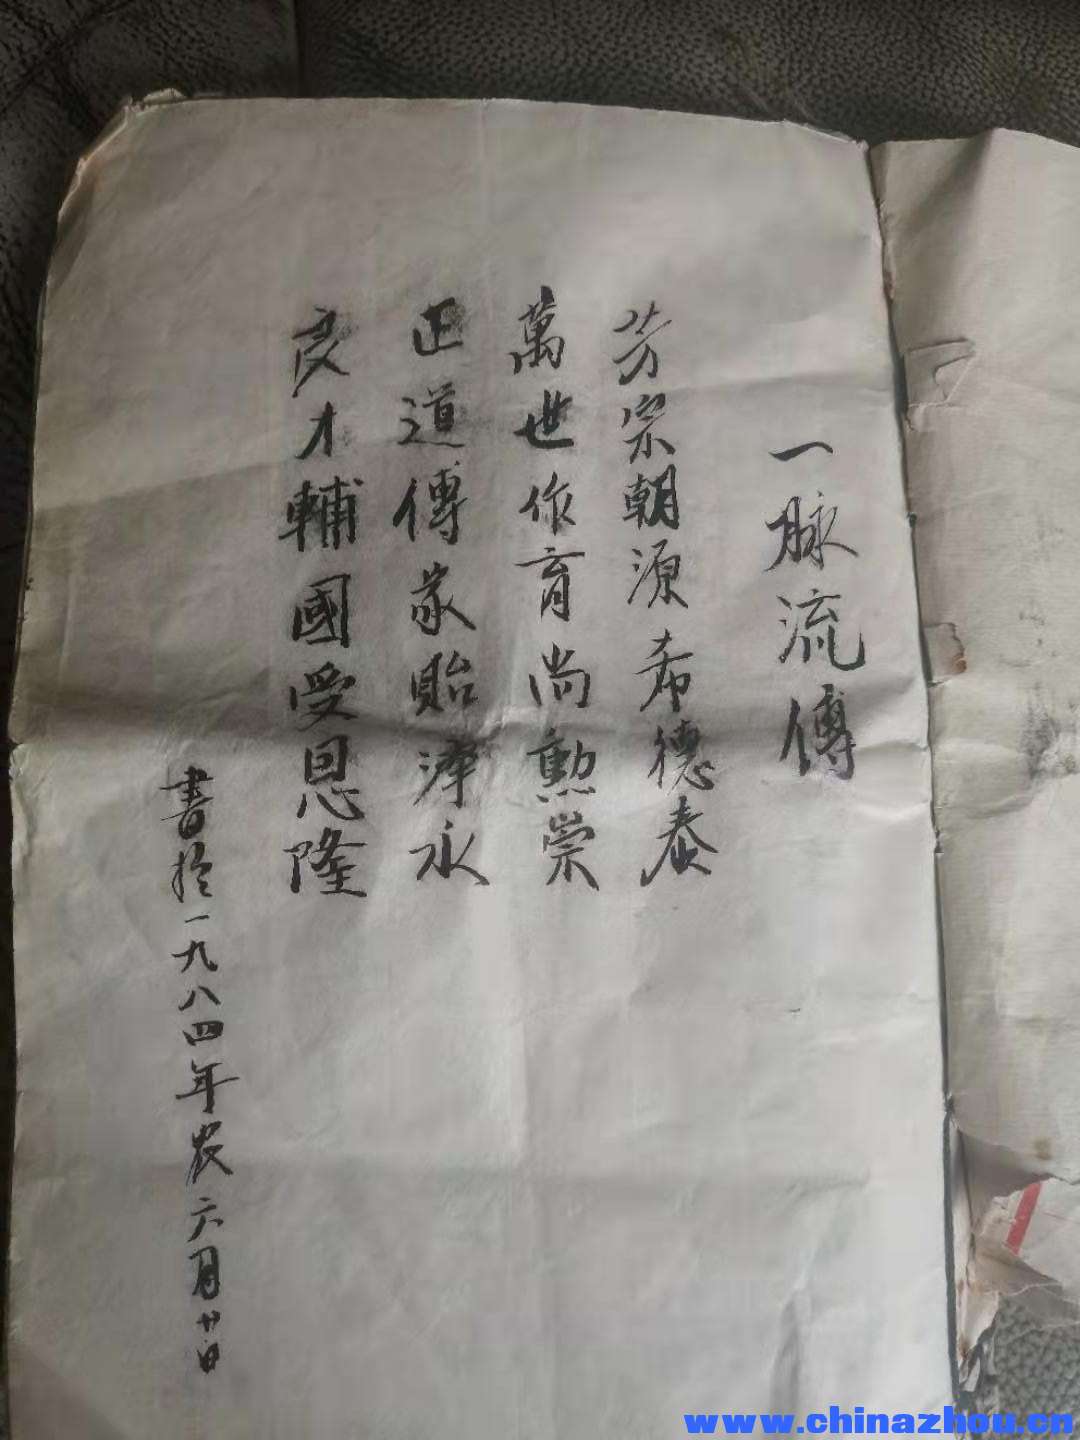 一脉流傳
芳宗朝源希德泰
萬世作育尚勳崇
正道傳家貽泽永
良才輔國受恩隆
書於一九八四年农六月廿日
www.chinazhou.cn